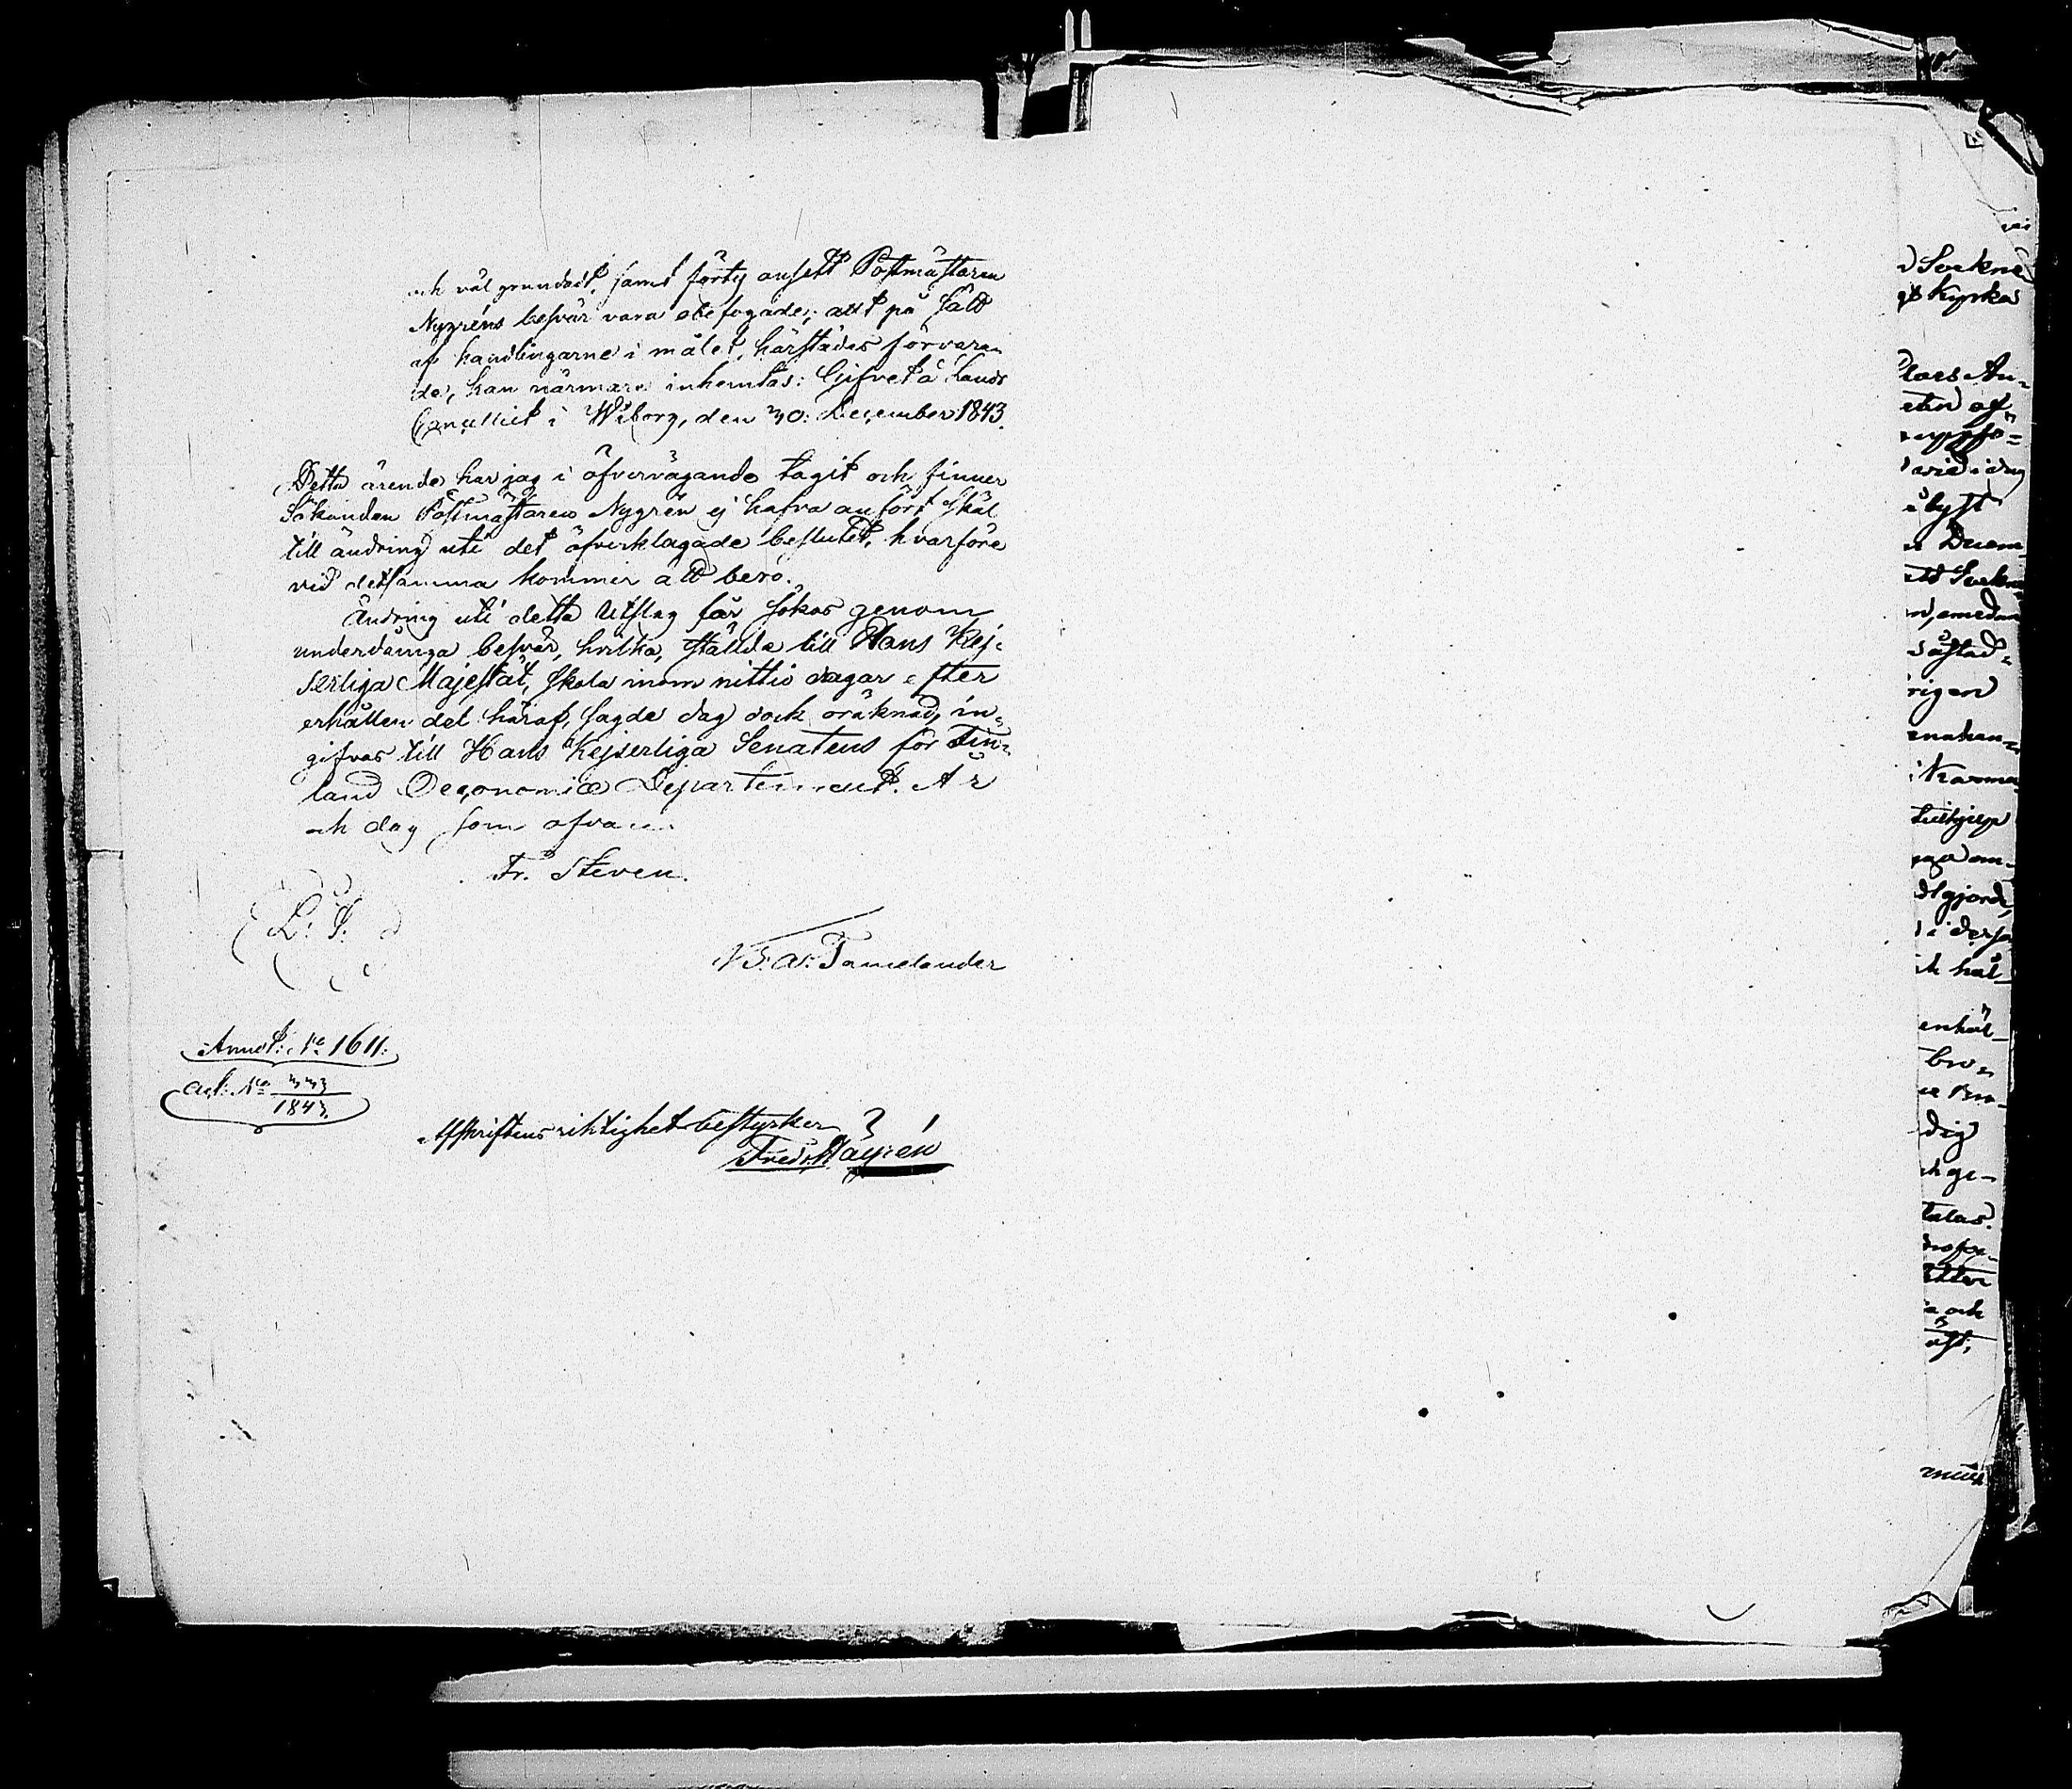 och väl grundadt, samt förty ansett Postmästaren
Nygréns besvär vara obefogade; allt på sätt
af handlingarne i målet, härstädes förvaran-
de, kan närmare inhemtas: Gifvet å Lands
Cancelliet i Wiborg, den 30: December 1843.
Detta ärende har jag i öfvervägande tagit och finner
Sökanden Postmästaren Nygrén ej hafva anfört skäl
till ändring uti det öfverklagade beslutet, hvarföre
vid detsamma kommer att bero.
Ändring uti detta Utslag får sökas genom
underdåniga besvär, hvilka, ställde till Hans Kej-
serliga Majestät, skola inom nittio dagar efter
erhållen del häraf, sagde dag dock oräknad, in-
gifvas till Hans Kejserliga Senatens för Fin-
land Oeconomie Departement. År
och dag som ofvan.
Fr. Steven.
L. S.
Tamelander
Annot: No 1611:
act: No 333/1843.
Afskriftens riktighet bestyrker
Fredr.
) Sockne
Kyrka
Lars An-
af
i byst
rigen
gjorde,
hål-
enhål-
bro-
dig
ch ge-
talas.
a och